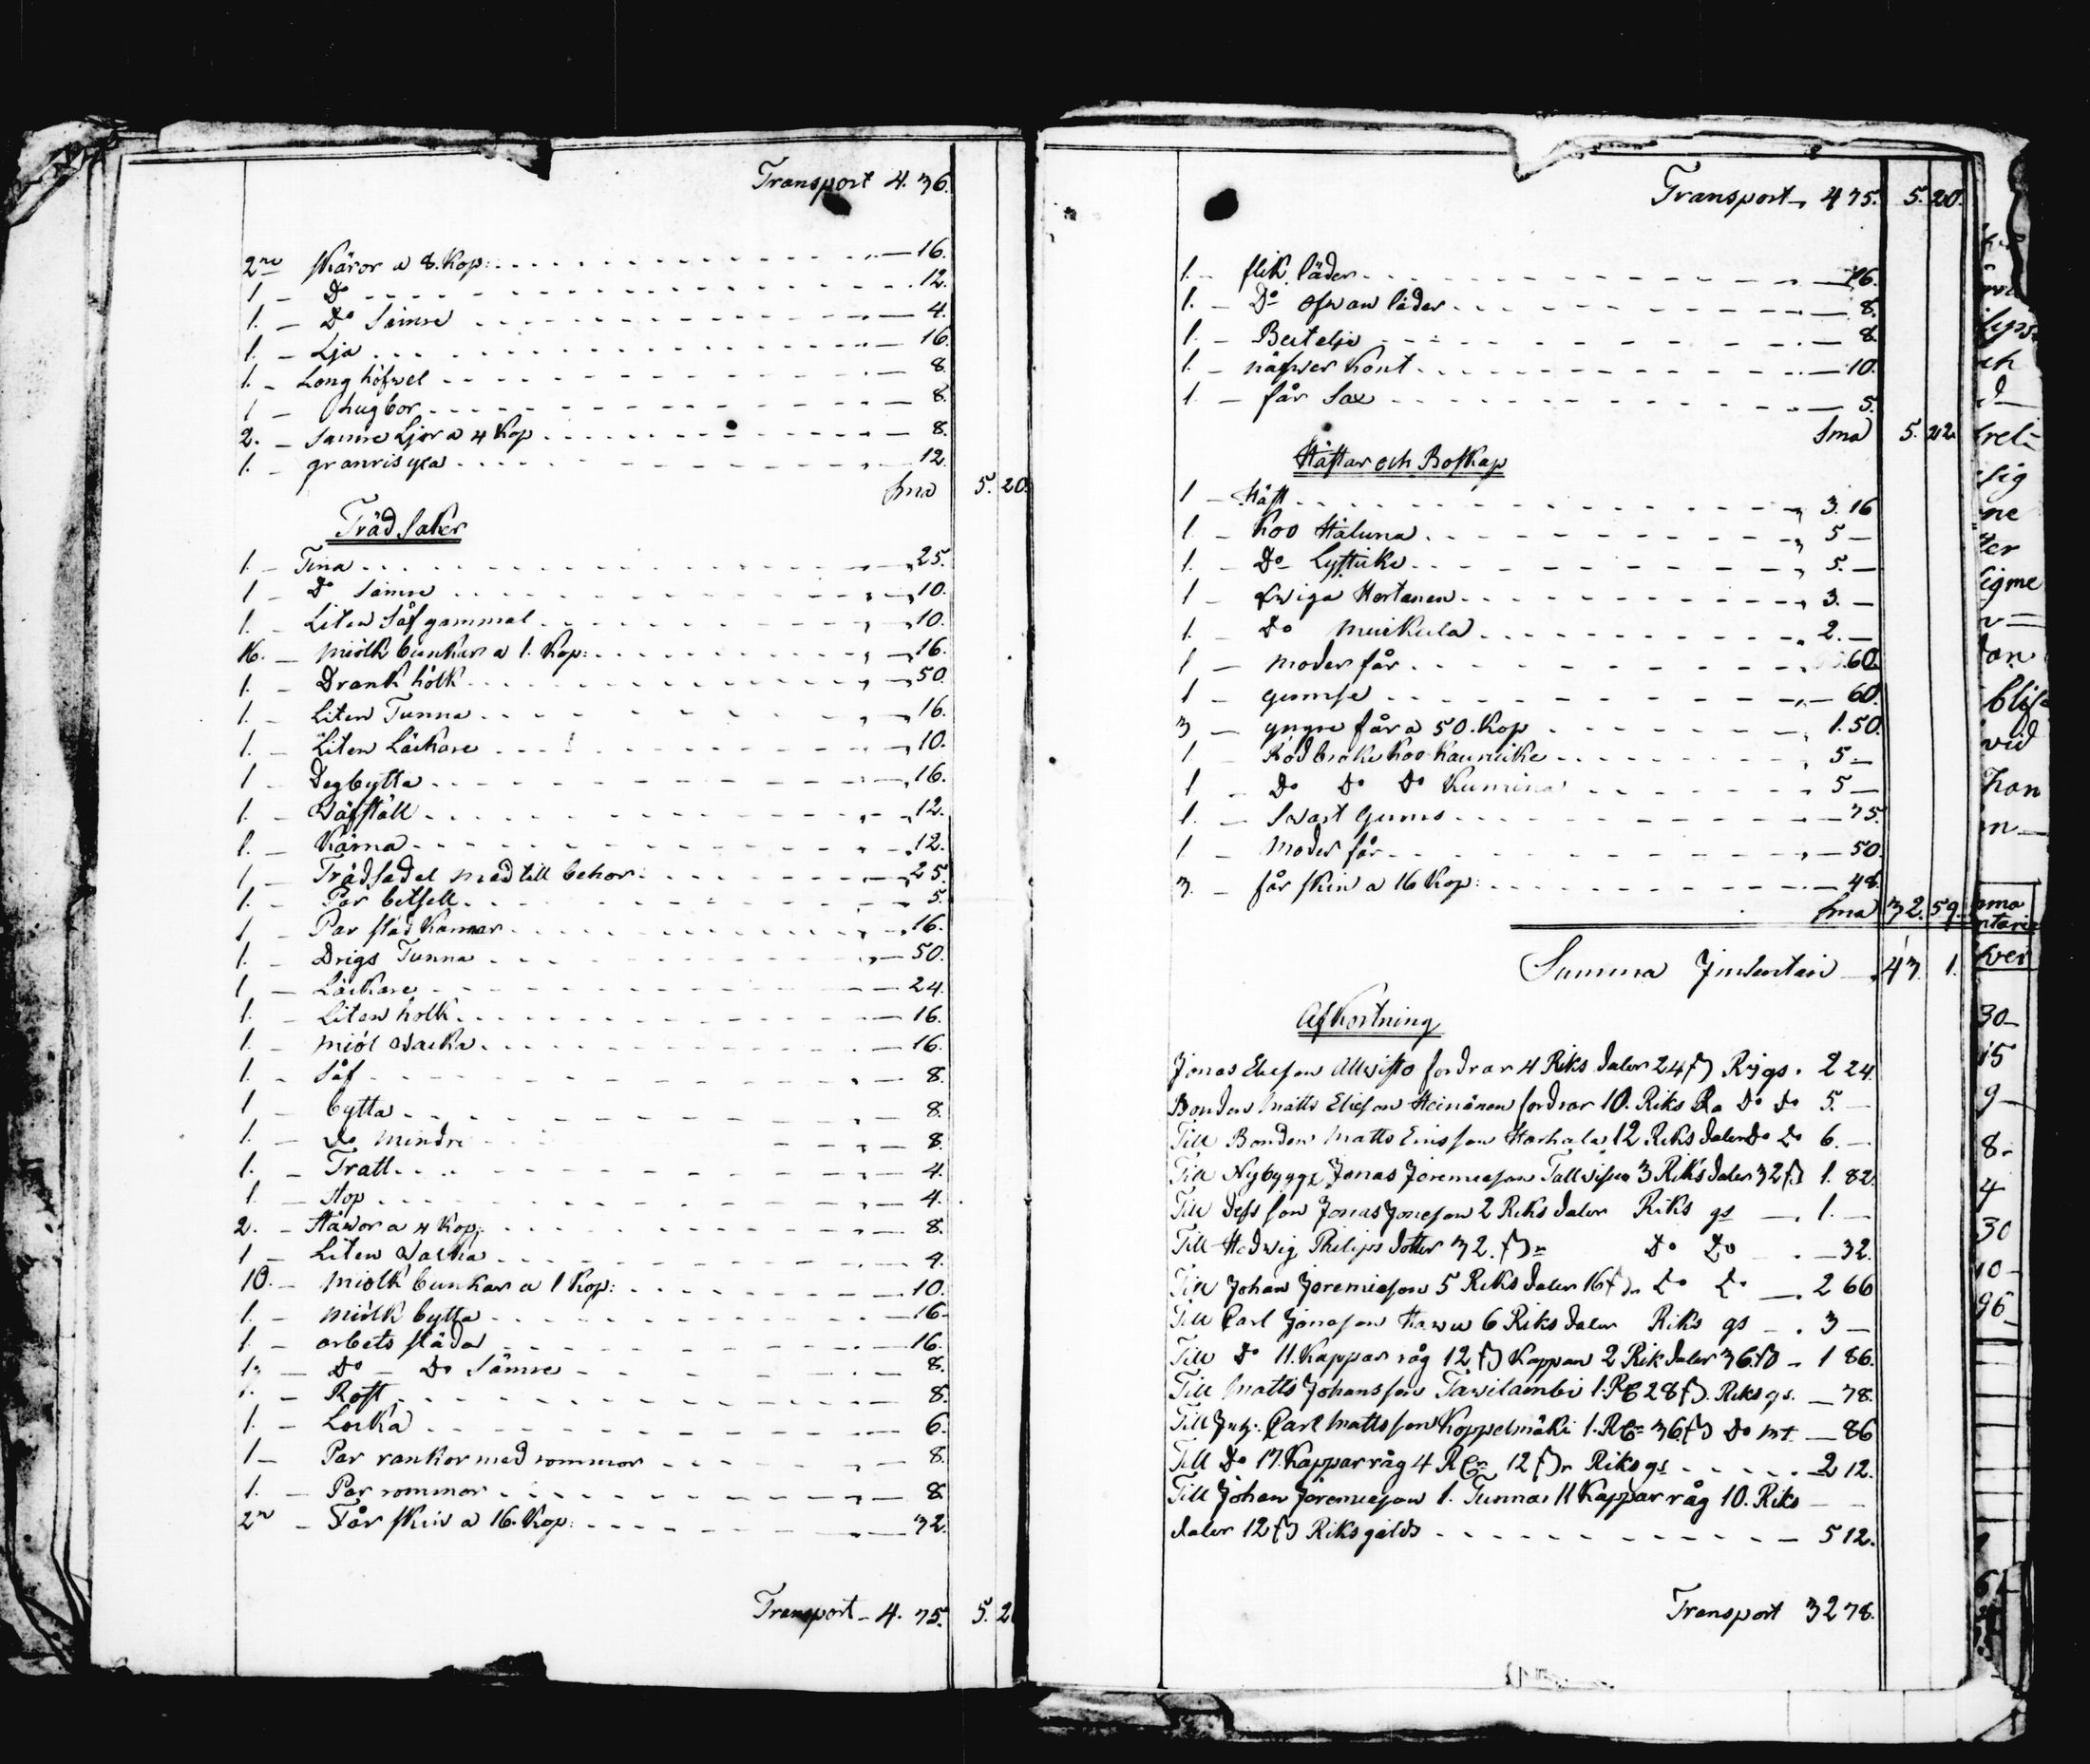 Transport 4. 36.
2ne skäror a 8. Kop: 16.
1 - Do 12.
1. - Do Sämre 4.
1. - Lja 16.
1. - Long höfvel 8.
1 - hugbor 8.
2. - Samre Ljor a 4 Kop 8.
1. - granris yxa 12.
Sma 5. 20.
Träd Saker
1. - Tina 25.
1 - Do Sämre 10.
1. - Liten Såf gammal 10.
16. - miölk bunkar a 1. Kop: 16.
1. - Drank hölk 50.
1. - Liten Tunna 16.
1. - Liten Läckare 10.
1 - Degbytta 16.
1. - Wäfställ 12.
1. - Kärna 12.
1 - Trädsadel med till behör: 25.
1. - Par betsell 5.
1 - Par släd Kannar 16.
1. - Drigs Tunna 50.
1 - Läckare 24.
1. - Liten holk 16.
1. - miöl Wacka 16.
1. - Såf 8.
1 - bytta 8.
1. - do mindre 8.
1. - Tratt 4.
1 - Stop 4.
2. - Håwor a 4 Kop: 8.
1 - Liten Wacka 4.
10. - miölk bunkar a 1 Kop: 10.
1. - miölk bytta 16.
1. - arbets släda 16.
1. - Do - Do Sämre 8.
1. - Rost 8.
1. - Locka 6.
1 - Par rankor med rommor 8.
1. - Par rommor 8
2ne - Får skin a 16. Kop: 32.
Transport - 4. 75. 5. 2
Transport 4 75. 5. 20.
1. - flik läder 16.
1. - Do ofwan läder 8.
1. - Butelje 8.
1 - näfwer Kont 10.
1 - får Sax 5.
Sma 5. 22.
Hästar och Boskap
1 - Häst 3. 16
1 - Koo Haluna 5 -
1. - Do Lystike 5. -
1 - qwiga Hertanen 3. -
1. - Do Muikula 2. -
1 - moder får 60.
1 - gumse 60.
3 - yngre får a 50. Kop 1. 50.
1 - Rödbrokи Koo Kaunike 5 -
1 - Do Do Do Kumina 5 -
1. - Swart Gums 75.
1 - Moder får 50.
3. - får skin a 16 Kop: 48.
Sma 32. 59.
Summa Inventari 43. 1.
Afkortning
Jonas Elieson Allwisto fordrar 4 Riks daler 24 ß Rijgs. 2 24.
Bonden Matts Elieson Heinänen fordrar 10. Riks Do Do 5. -
Till Bonden Matts Ericsson Harhala 12 Riks daler Do Do 6. -
Till Nybygge Jonas Jeremieson 3 Riks daler 32 ß 1. 82.
Till dess son Jonas Joneson 2 Riks daler Riks gs 1. -
Till Hedwig Philips dotter 32. ß Do Do 32.
Till Johan Jeremieson 5 Riks daler 16 ß Do Do 2 66
Till Carl Jonason Harwu 6 Riks daler Riks gs 3 -
Till Do 11. Kappar råg 12 ß Kappan 2 Rik daler 36. ß 1 86.
Till Matts Johansson Tawilambi 1. Rd 28 ß. Riks gs. 78.
Till Carl Mattsson Koppelmäki 1. Rd 36 ß Do 86
Till Do 17. Kappar råg 4 Rd 12 ß Riks gs 2 12.
Till Johan Jeremieson 1. Tunna 11 Kappar råg 10. Riks
daler 12 ß Riksgälds 5 12.
Transport 32 78.